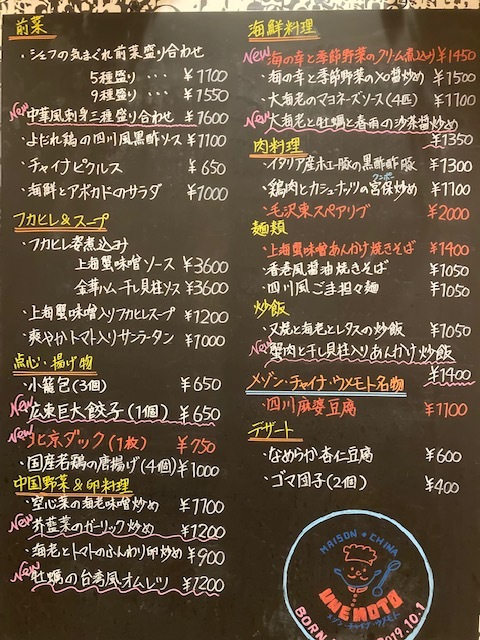 前菜
・シェフの気まぐれ前菜盛り合わせ
5種盛り ・・・ ¥1100
9種盛り ・・・ ¥1550
New 中華風刺身三種盛り合わせ ¥1600
・よだれ鶏の四川風黒酢ソース ¥1100
・チャイナピクルス ¥650
・海鮮とアボカドのサラダ ¥1000
フカヒレ&スープ
・フカヒレ姿煮込み
上海蟹味噌ソース ¥3600
金華ハム干し貝柱ソース ¥3600
・上海蟹味噌入りフカヒレスープ ¥1200
・爽やかトマト入りサンラータン ¥1000
点心・揚げ物
・小籠包(3個) ¥650
New 広東巨大餃子(1個) ¥650
New 北京ダック(1枚) ¥750
・国産若鶏の唐揚げ(4個) ¥1000
中国野菜&卵料理
・空心菜の海老味噌炒め ¥1100
New 芥藍菜のガーリック炒め ¥1200
・海老とトマトのふんわり卵炒め ¥900
New 牡蠣の台湾風オムレツ ¥1200
海鮮料理
New 海の幸と季節野菜のクリーム煮込み ¥1450
・海の幸と季節野菜のXO醤炒め ¥1500
・大海老のマヨネーズソース(4匹) ¥1100
New 大海老と牡蠣と春雨の沙茶醤炒め
¥1350
肉料理
・イタリア産ホエー豚の黒酢酢豚 ¥1300
・鶏肉とカシューナッツの宮保炒め ¥1100
クンポー
・毛沢東スペアリブ ¥2000
麺類
・上海蟹味噌あんかけ焼きそば ¥1400
・香港風醤油焼きそば ¥1050
・四川風ごま担々麺 ¥1050
炒飯
・叉焼と海老とレタスの炒飯 ¥1050
New 蟹肉と干し貝柱入りあんかけ炒飯
¥1400
メゾン・チャイナ・ウメモト名物
・四川麻婆豆腐 ¥1100
デザート
・なめらか杏仁豆腐 ¥600
・ゴマ団子(2個) ¥400
MAISON・CHINA
UMEMOTO
メゾン・チャイナ・ウメモト
BORN 2019.10.1